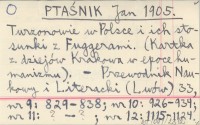 O
PTAŚNIK Jan 1905.
Turzonowie w Polsce i ich sto-
sunki z Fuggerami. (Kartka
z dziejów Krakowa w epoce hu-
manizmu). – Przewodnik Nau-
kowy i Literacki (Lwów) 33,
nr 9: 829-838; nr 10: 926-934,
nr 11: ? - ? ; nr 12: 1115-1124.